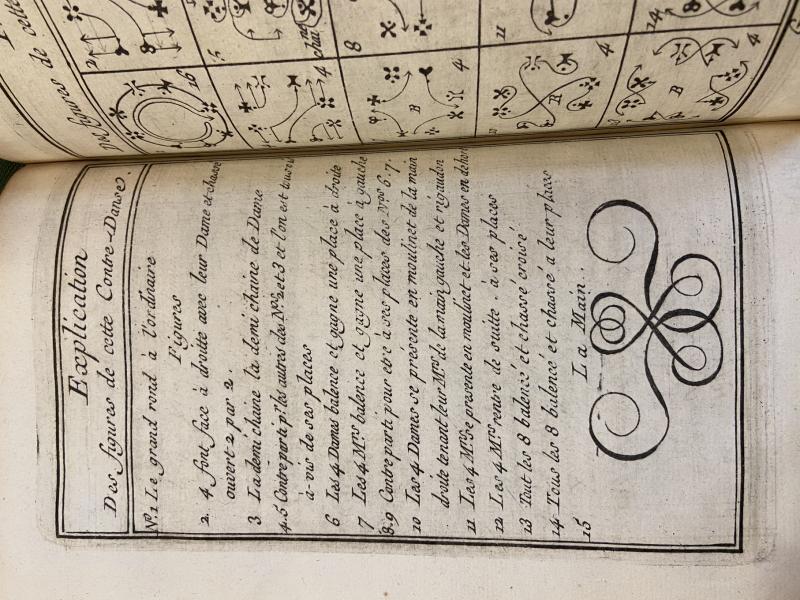 Explication
Des figures de cette Contre-Danse.
Nº. 1 Le grand rond à l'ordinaire
Figures
2. 4 font face à droitte avec leur Dame et chassé
ouvert 2 par 2.
3. La demi chaine la demi chaine de Dame
4.5 Contre parti pr. les autres des Nos. 2 et 3 et l'on est tous
à-vis de ses places
6 Les 4 Dames balence et gagne une place à droite
7 Les 4 Mrs balence et gagne une place à gauche
8.9 Contre parti pour etre à ses places des Nos 6.7.
10 Les 4 Dames se présente en moulinet de la main
droite tenant leur Mrs de la main gauche et rigaudon
11 Les 4 Mrs se presente en moulinet et les Dames en dehors
12 Les 4 Mrs rentre de suitte à ses places
13 Tout les 8 balencé et chassé croisé
14 Tous les 8 balencé et chassé a leur places
15 La Main.
figures de cette
2
8
5
chai ne
8
11
14
16
4
B
4
4
B
4